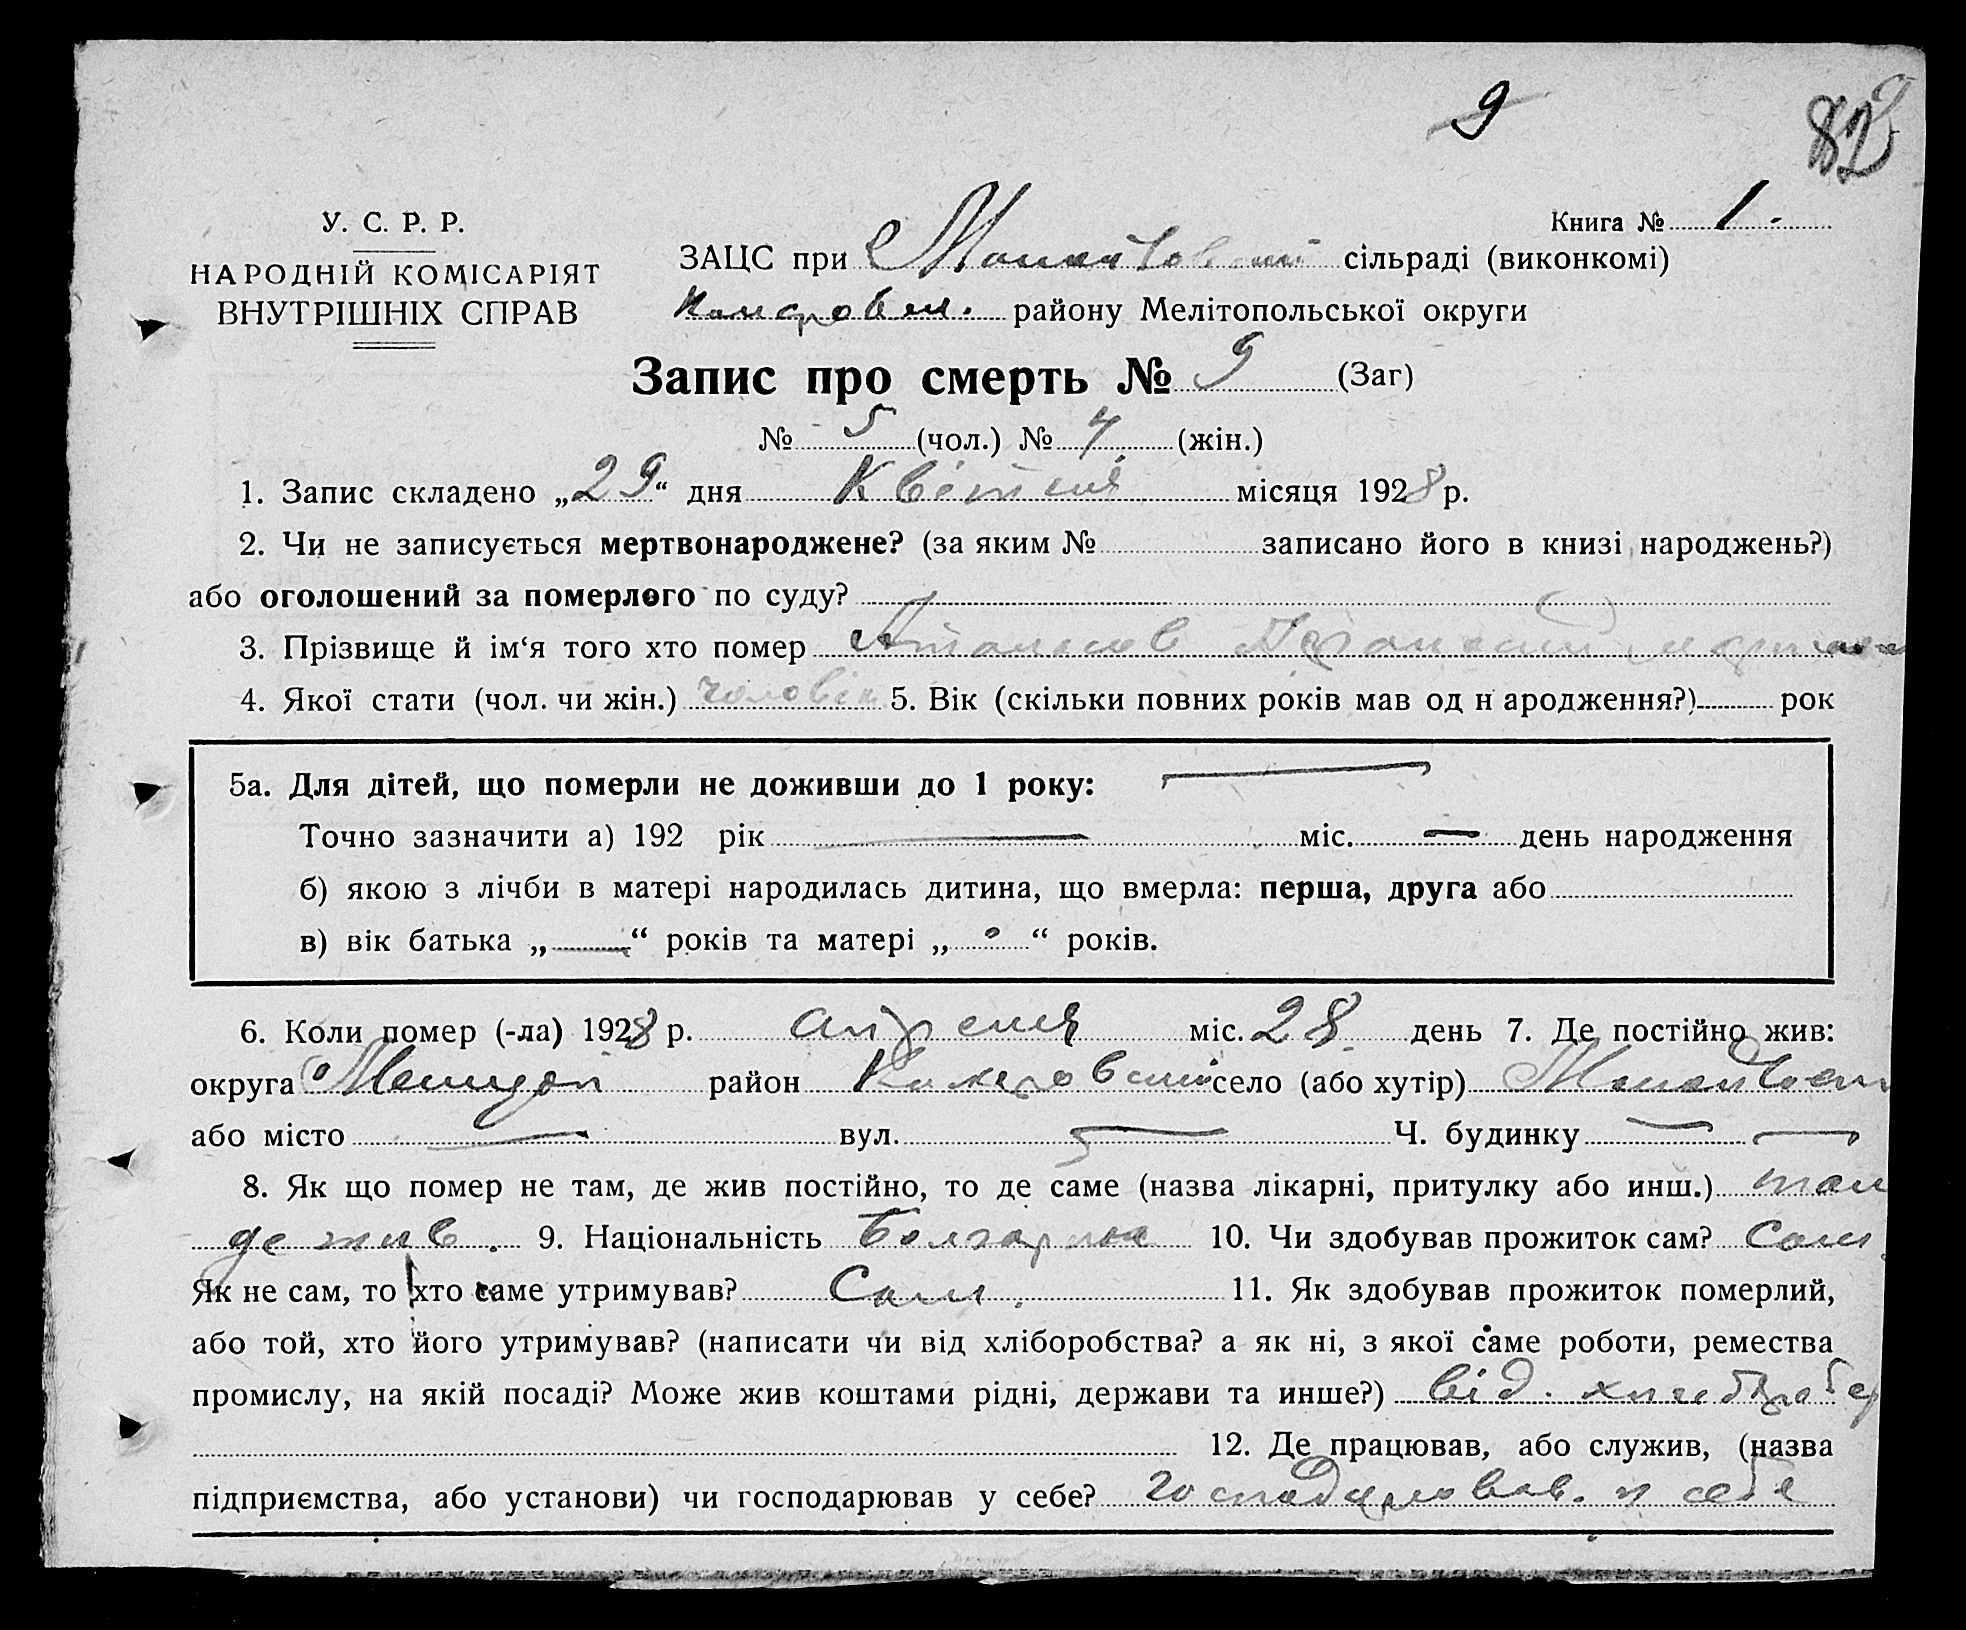 9
82
У. С. Р. Р.
НАРОДНІЙ КОМІСАРІЯТ
ВНУТРІШНІХ СПРАВ
Книга № 1.
ЗАЦС при сільраді (виконкомі)
району Мелітопольської округи
Запис про смерть № 9 (Заг)
№ 5 (чол.) № 4 (жін.)
1. Запис складено „29“ дня Квітня місяця 1928 р.
2. Чи не записується мертвонароджене? (за яким № записано його в книзі народжень?)
або оголошений за померлого по суду?
3. Прізвище й ім‘я того хто помер
4. Якої стати (чол. чи жін.) человік 5. Вік (скільки повних років мав од н ародження?) рок
5а. Для дітей, що померли не доживши до 1 року:
Точно зазначити а) 192 рік — міс. — день народження
б) якою з лічби в матері народилась дитина, що вмерла: перша, друга або
в) вік батька „—“ років та матері „ “ років.
6. Коли помер (-ла) 1928 р. апреля міс. 28 день 7. Де постійно жив:
округа район село (або хутір)
або місто — вул. — Ч. будинку —
8. Як що помер не там, де жив постійно, то де саме (назва лікарні, притулку або инш.) там
де жив. 9. Національність 10. Чи здобував прожиток сам? Сам
Як не сам, то хто саме утримував? Сам. 11. Як здобував прожиток померлий,
або той, хто його утримував? (написати чи від хліборобства? а як ні, з якої саме роботи, ремества
промислу, на якій посаді? Може жив коштами рідні, держави та инше?) від.
12. Де працював, або служив, (назва
підприємства, або установи) чи господарював у себе? у себе